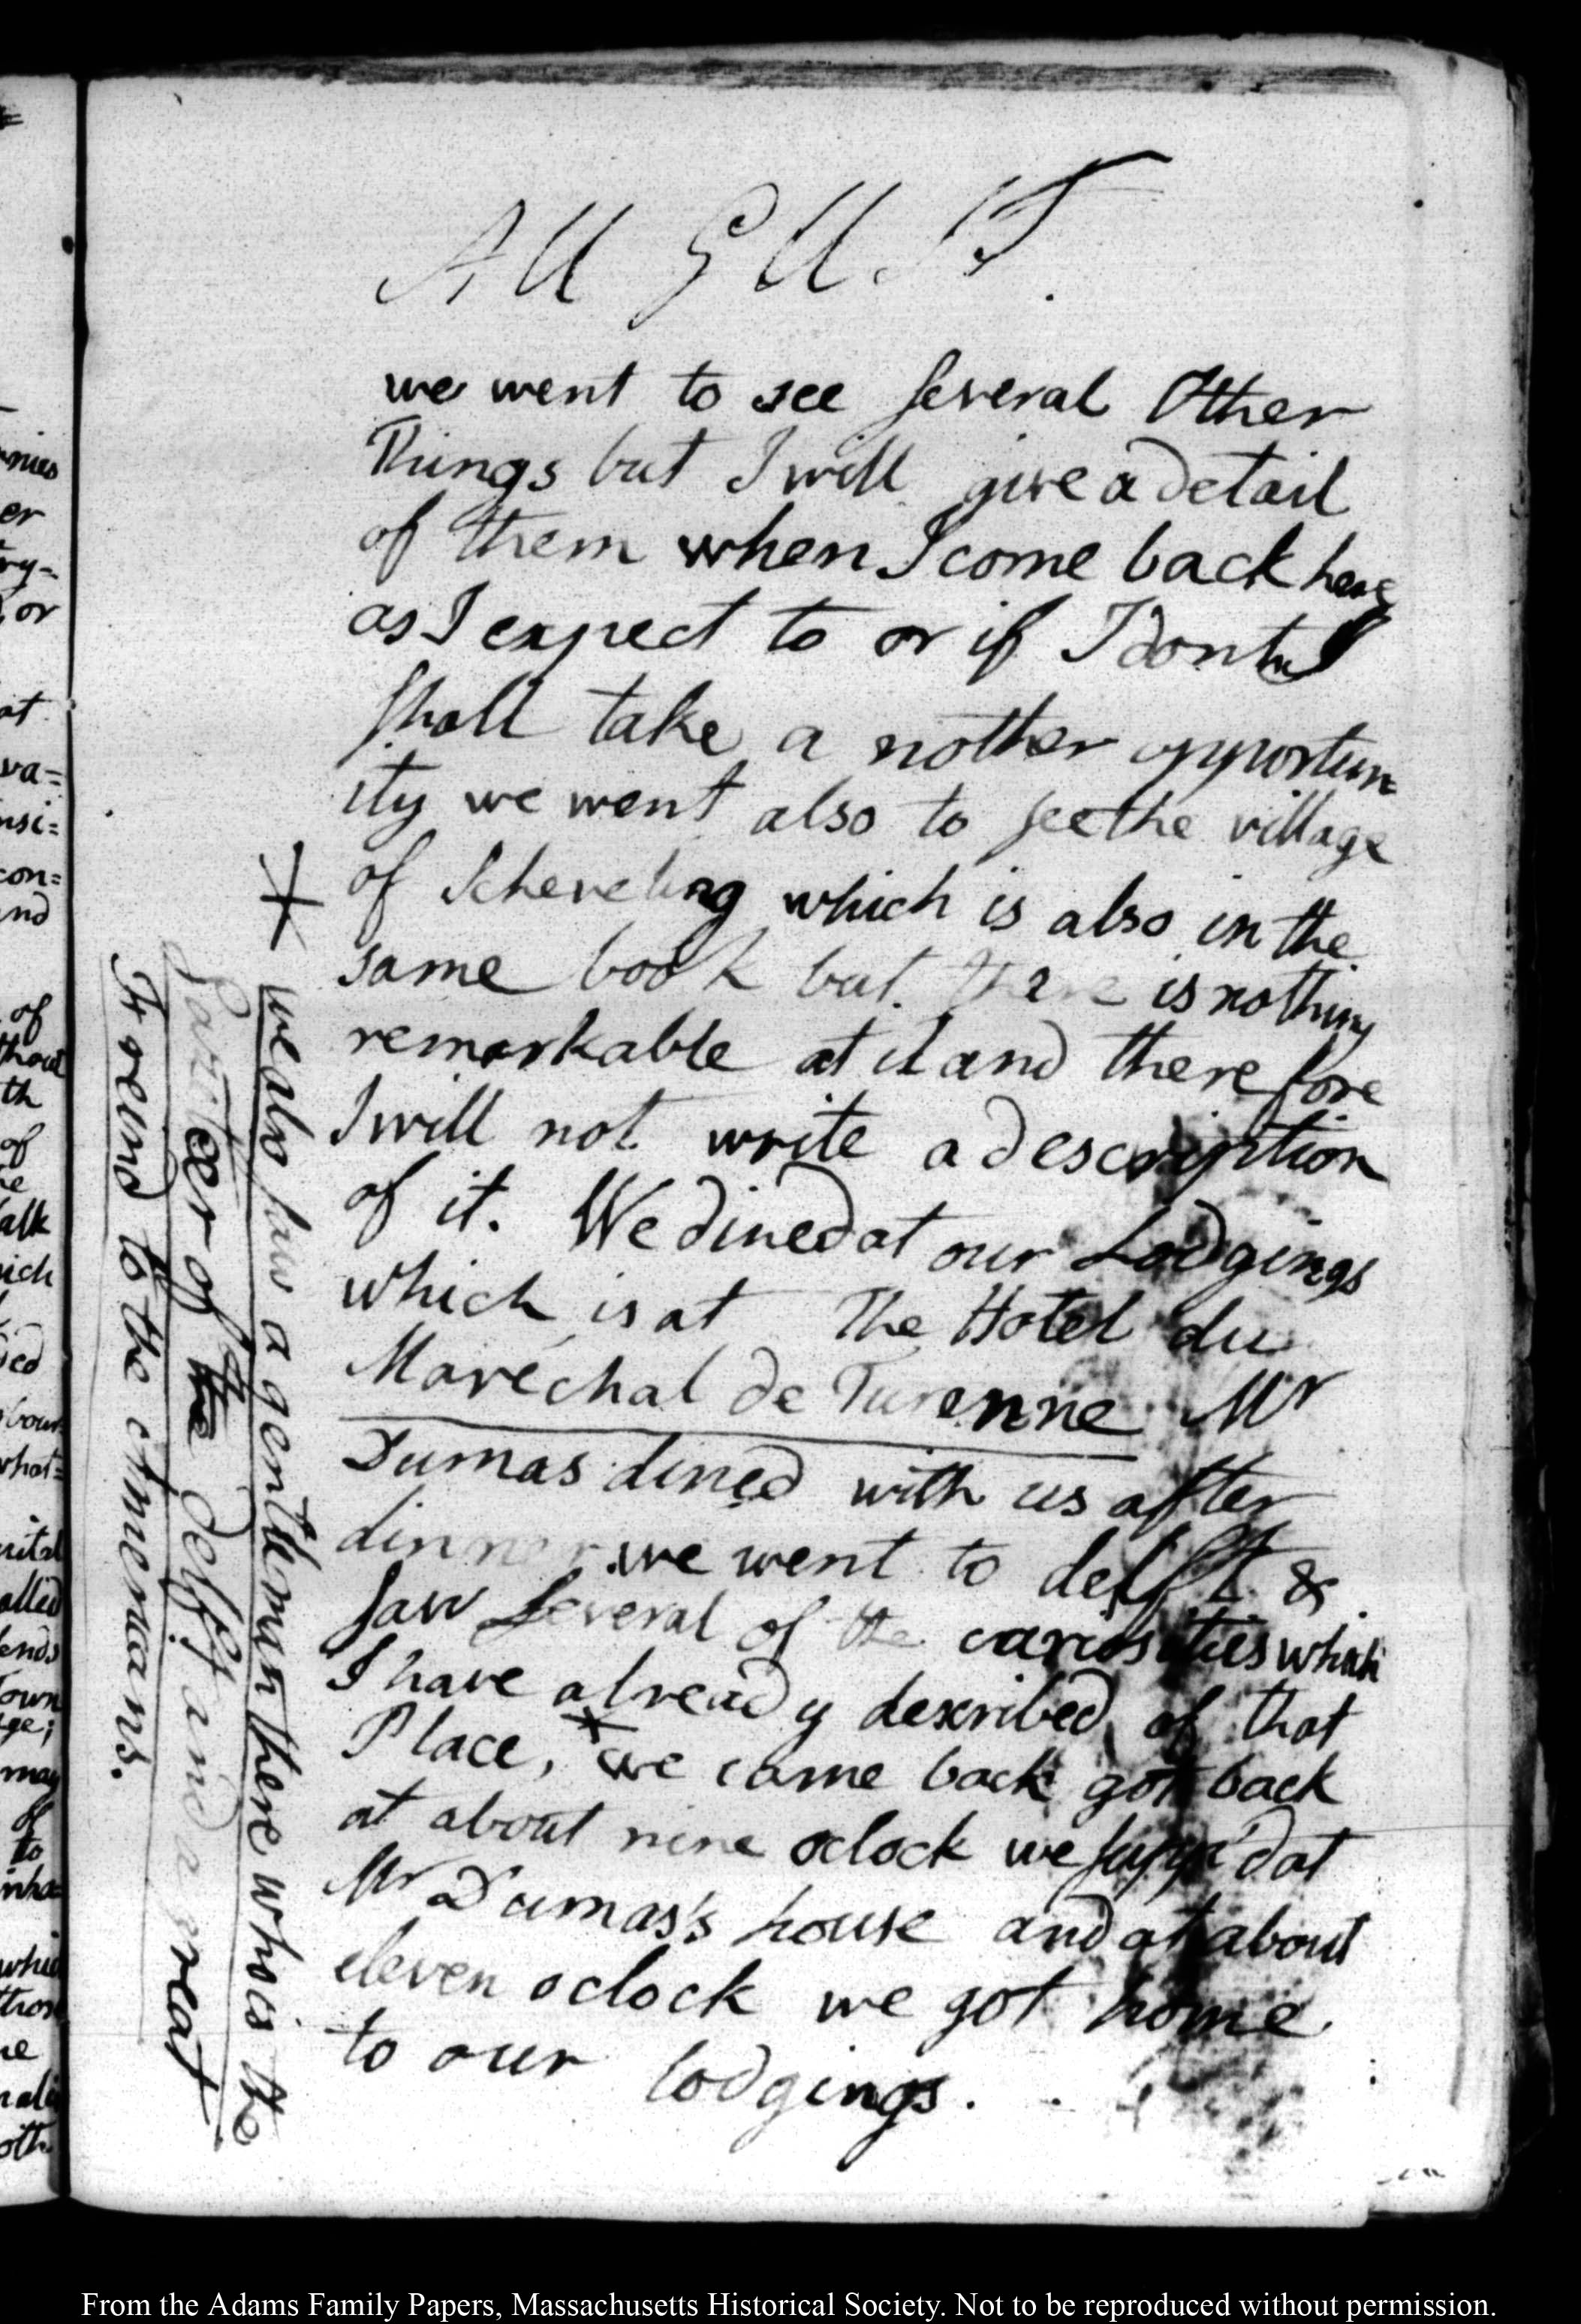 AUGUST.
we went to see several Other
Things but I will give a detail
of them when I come back here
as I expect to or if I dont I
shall take a nother opportun
ity we went also to see the village
of Scheveling which is also in the
same book but there is nothing
remarkable at it and there fore
I will not write a description
of it. We dined at our Lodgings
which is at The Hotel du
Maréchal de Turenne Mr
Dumas dined with us after
dinner we went to delft &
saw several of the curiosities which
I have already described of that
Place, * we came back got back
at about nine oclock we supp'd at
Mr Dumas's house and at about
eleven oclock we got home
to our lodgings.
* we also saw a gentleman there who is the
of the Delft and a great
Friend to the Americans.
nies
er
ry-
or
at
va=
nsi:
con=
and
of
thout
th
of
alk
ich
bour
what=
alled
ends
Town
may
of
to
inha=
whi
thos
oth
From the Adams Family Papers, Massachusetts Historical Society. Not to be reproduced without permission.